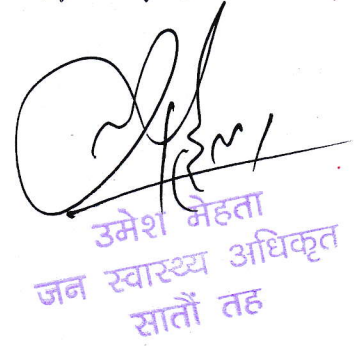 उमेश मेहता
जन स्वास्थ्य अधिकृत
सातौं तह